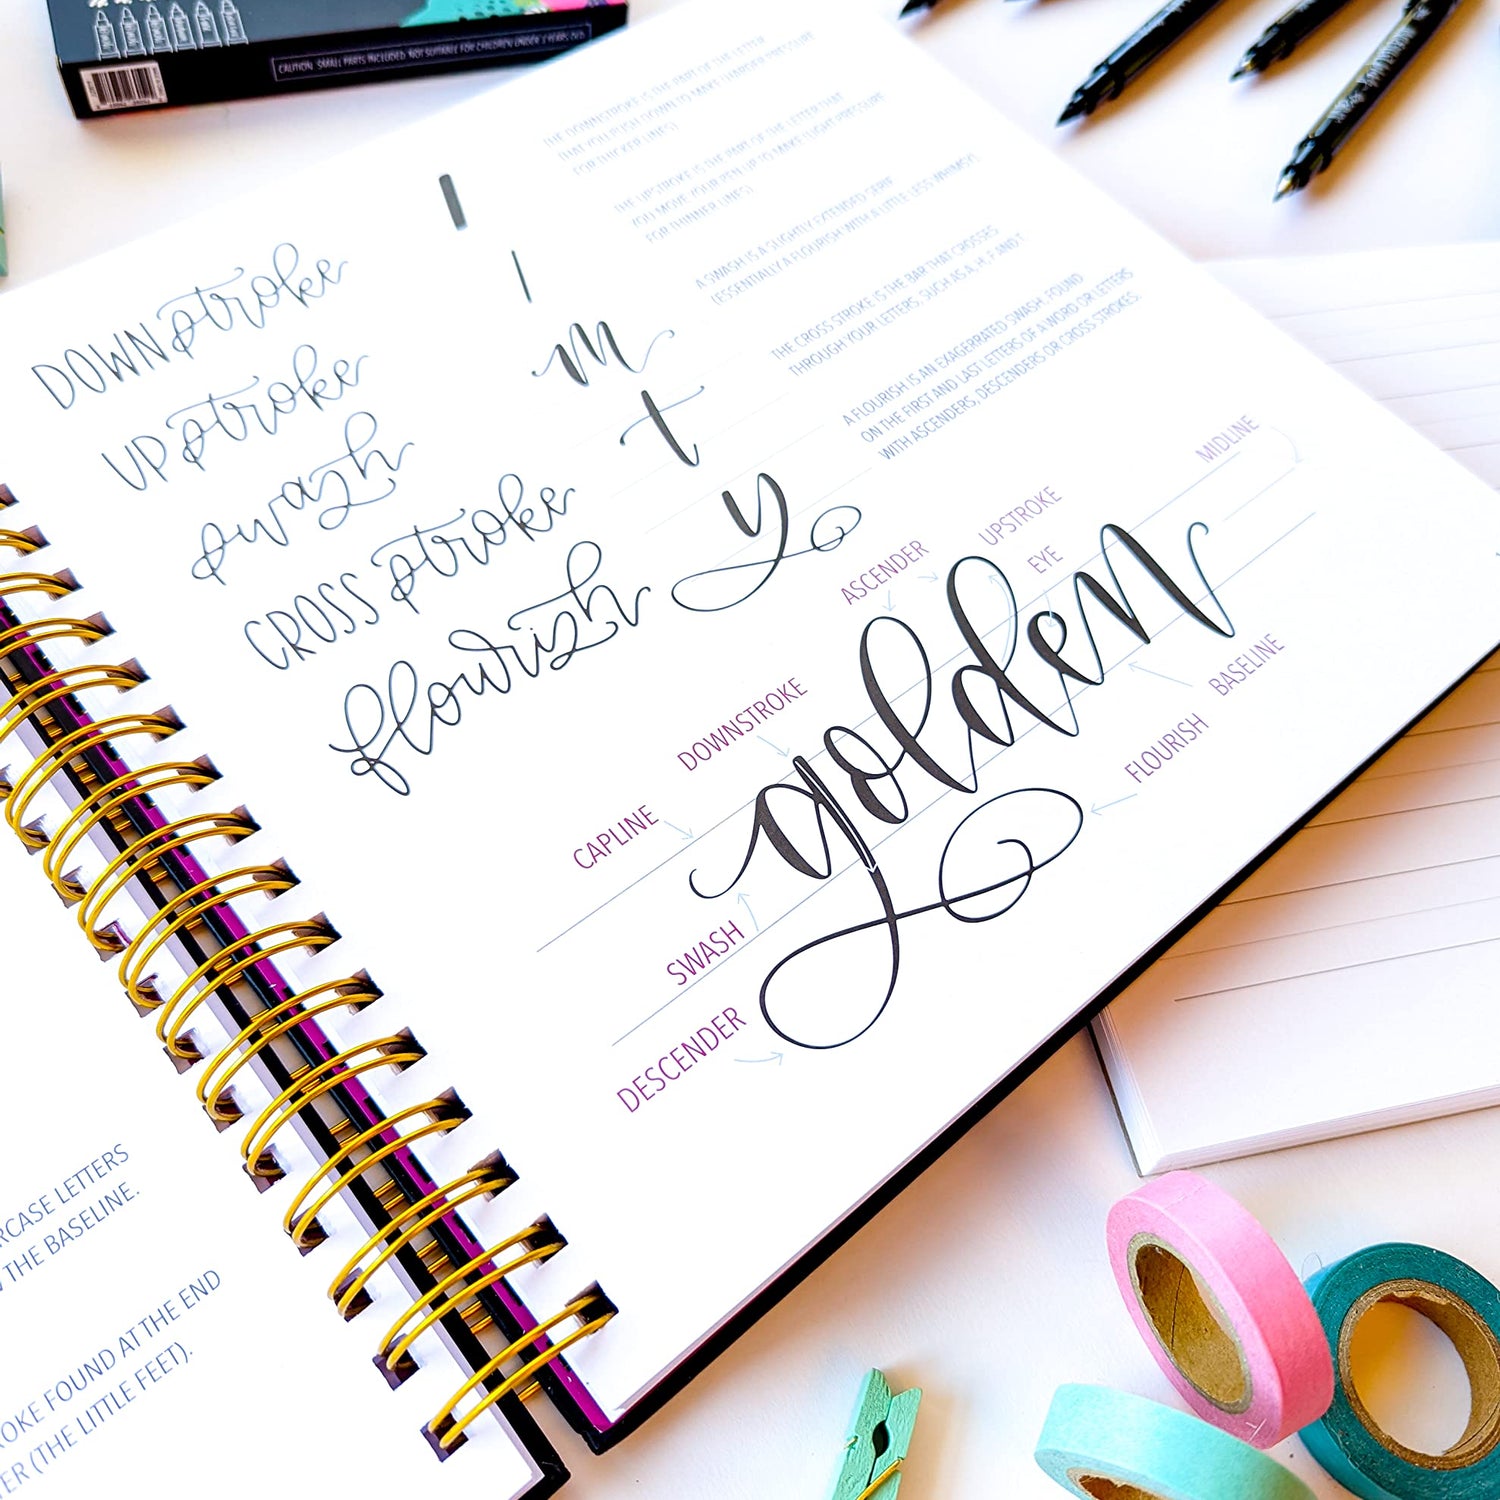 CAUTION: SMALL PARTS INCLUDED. NOT SUITABLE FOR CHILDREN UNDER 3 YEARS OLD.
DOWNstroke
THE DOWNSTROKE IS THE PART OF THE LETTER
THAT YOU PUSH DOWN TO MAKE (HARDER PRESSURE
FOR THICKER LINES)
UPstroke
THE UPSTROKE IS THE PART OF THE LETTER THAT
YOU MOVE YOUR PEN UP TO MAKE (LIGHT PRESSURE
FOR THINNER LINES)
swash
m
A SWASH IS A SLIGHTLY EXTENDED SERIF
(ESSENTIALLY A FLOURISH WITH A LITTLE LESS WHIMSY).
CROSS stroke
t
THE CROSS STROKE IS THE BAR THAT CROSSES
THROUGH YOUR LETTERS, SUCH AS A, H, F AND T.
flourish
y
A FLOURISH IS AN EXAGERRATED SWASH. FOUND
ON THE FIRST AND LAST LETTERS OF A WORD OR LETTERS
WITH ASCENDERS, DESCENDERS OR CROSS STROKES.
MIDLINE
UPSTROKE
ASCENDER
EYE
DOWNSTROKE
CAPLINE
golden
BASELINE
FLOURISH
SWASH
DESCENDER
LETTERS
THE BASELINE.
FOUND AT THE END
(THE LITTLE FEET).